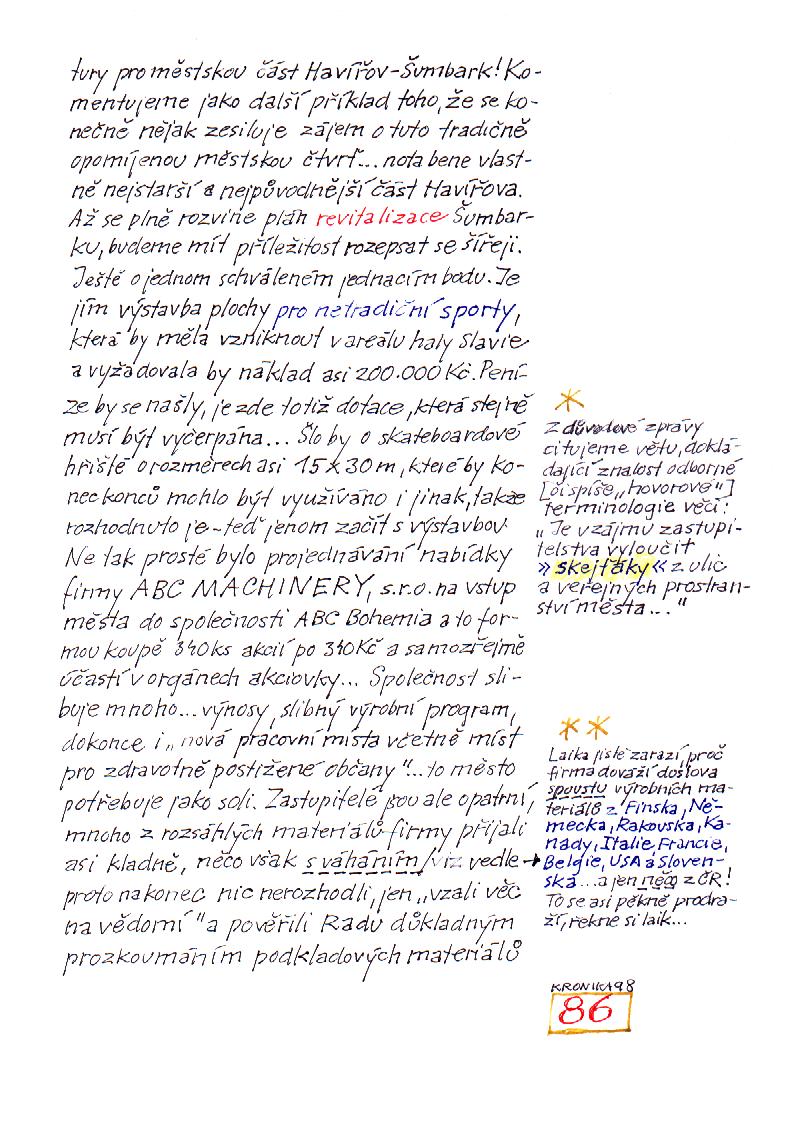 tury pro městskou část Havířov-Šumbark! Ko-
mentujeme jako další příklad toho, že se ko-
nečně nějak zesiluje zájem o tuto tradičně
opomíjenou městskou čtvrť... nota bene vlast-
ně nejstarší a nejpůvodnější část Havířova.
Až se plně rozvine plán revitalizace Šumbar-
ku, budeme mít příležitost rozepsat se šířeji.
Ještě o jednom schváleném jednacím bodu. Je
jím výstavba plochy pro netradiční sporty,
která by měla vzniknout v areálu haly Slavie
a vyžadovala by náklad asi 200.000 Kč. Pení-
ze by se našly, je zde totiž dotace, která stejně
musí být vyčerpána... Šlo by o skateboardové
hřiště o rozměrech asi 15 x 30 m, které by ko-
neckonců mohlo být využíváno i jinak, takže
rozhodnuto je - teď jenom začít s výstavbou.
Ne tak prosté bylo projednávání nabídky
firmy ABC MACHINERY, s.r.o. na vstup
města do společnosti ABC Bohemia a to for-
mou koupě 340 ks akcií po 340 Kč a samozřejmě
účastí v orgánech akciovky... Společnost sli-
buje mnoho... výnosy, slibný výrobní program,
dokonce i „nová pracovní místa včetně míst
pro zdravotně postižené občany"... to město
potřebuje jako soli. Zastupitelé jsou ale opatrní,
mnoho z rozsáhlých materiálů firmy přijali
asi kladně, něco však s váháním/viz vedle→
proto nakonec nic nerozhodli, jen „vzali věc
na vědomí" a pověřili Radu důkladným
prozkoumáním podkladových materiálů
*
Z důvodové zprávy
citujeme větu, doklá-
dající znalost odborné
[či spíše „hovorové"]
terminologie věci:
„Je v zájmu zastupi-
telstva vyloučit
»skejťáky« z ulic
a veřejných prostran-
ství města..."
**
Laika jistě zarazí, proč
firma dováží doslova
spoustu výrobních ma-
teriálů z Finska, Ně-
mecka, Rakouska, Ka-
nady, Italie, Francie,
Belgie, USA a Sloven-
ska... a jen něco z ČR!
To se asi pěkně prodra-
ží, řekne si laik...
KRONIKA 98
86